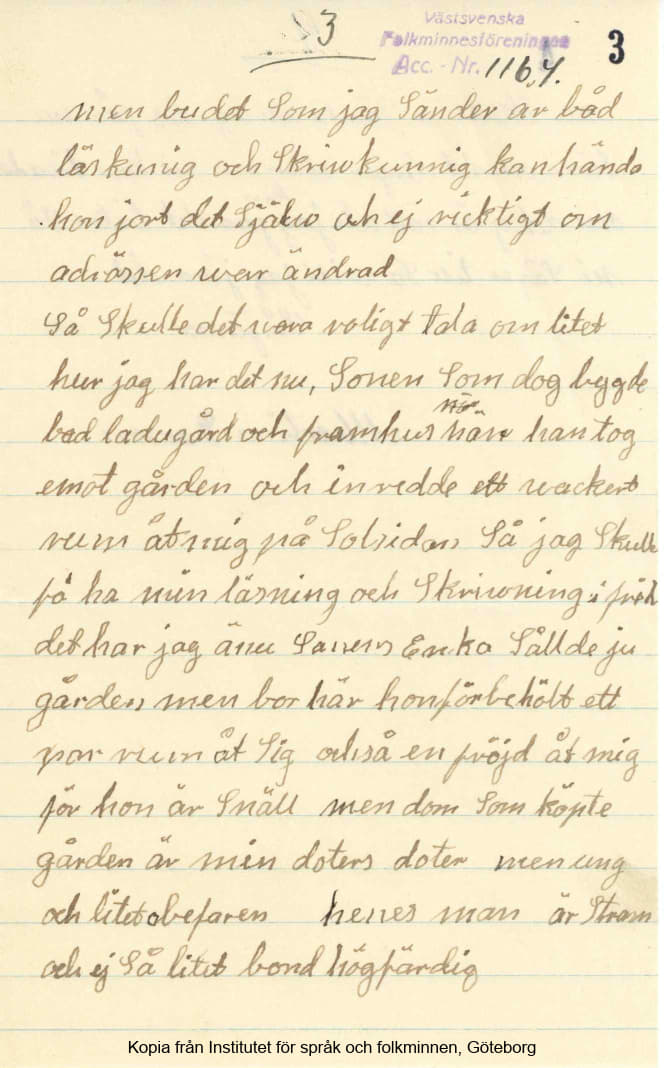 3
Västsvenska
Folkminnesföreningen
Acc. - Nr. 1164.
3
men budet Som jag Sänder är båd
läskunig och Skriwkunnig kanhända
hon jort det Själw och ej ricktigt om
adrässen war ändrad
Så Skulle det wara roligt tala om litet
hur jag har det nu, Sonen Som dog bygde
båd ladugård och framhus när han tog
emot gården och inredde ett wackert
rum åt mig på Solsidan Så jag Skulle
få ha min läsning och Skriwning i fred
det har jag änu Sonens Enka Sållde ju
gården men bor här hon förbehölt ett
par rum åt Sig också en fröjd åt mig
för hon är Snäll men dom Som köpte
gården är min doters doter men ung
och litet obefaren henes man är Stram
och ej Så litet bond högfärdig
Kopia från Institutet för språk och folkminnen, Göteborg